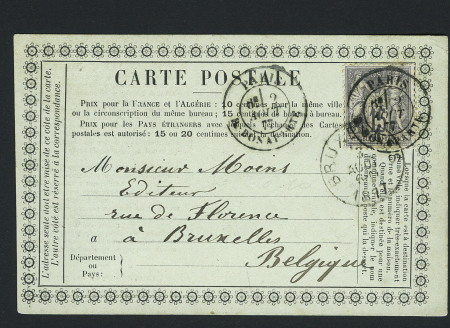 CARTE POSTALE
PRIX pour la FRANCE et l'ALGÉRIE: 10 centimes pour la même ville
ou circonscription du même bureau; 15 centimes de bureau à bureau.
PRIX pour les PAYS ÉTRANGERS avec lesquels l'échange des Cartes
postales est autorisé: 15 ou 20 centimes suivant la destination.
Monsieur Moens
Editeur
rue de Florence
a à Bruxelles
Belgique
Département
ou
Pays:
L'adresse seule doit être mise de ce côté de la carte.
L'autre côté est réservé à la correspondance.
Lorsque la carte est à destination
PARIS